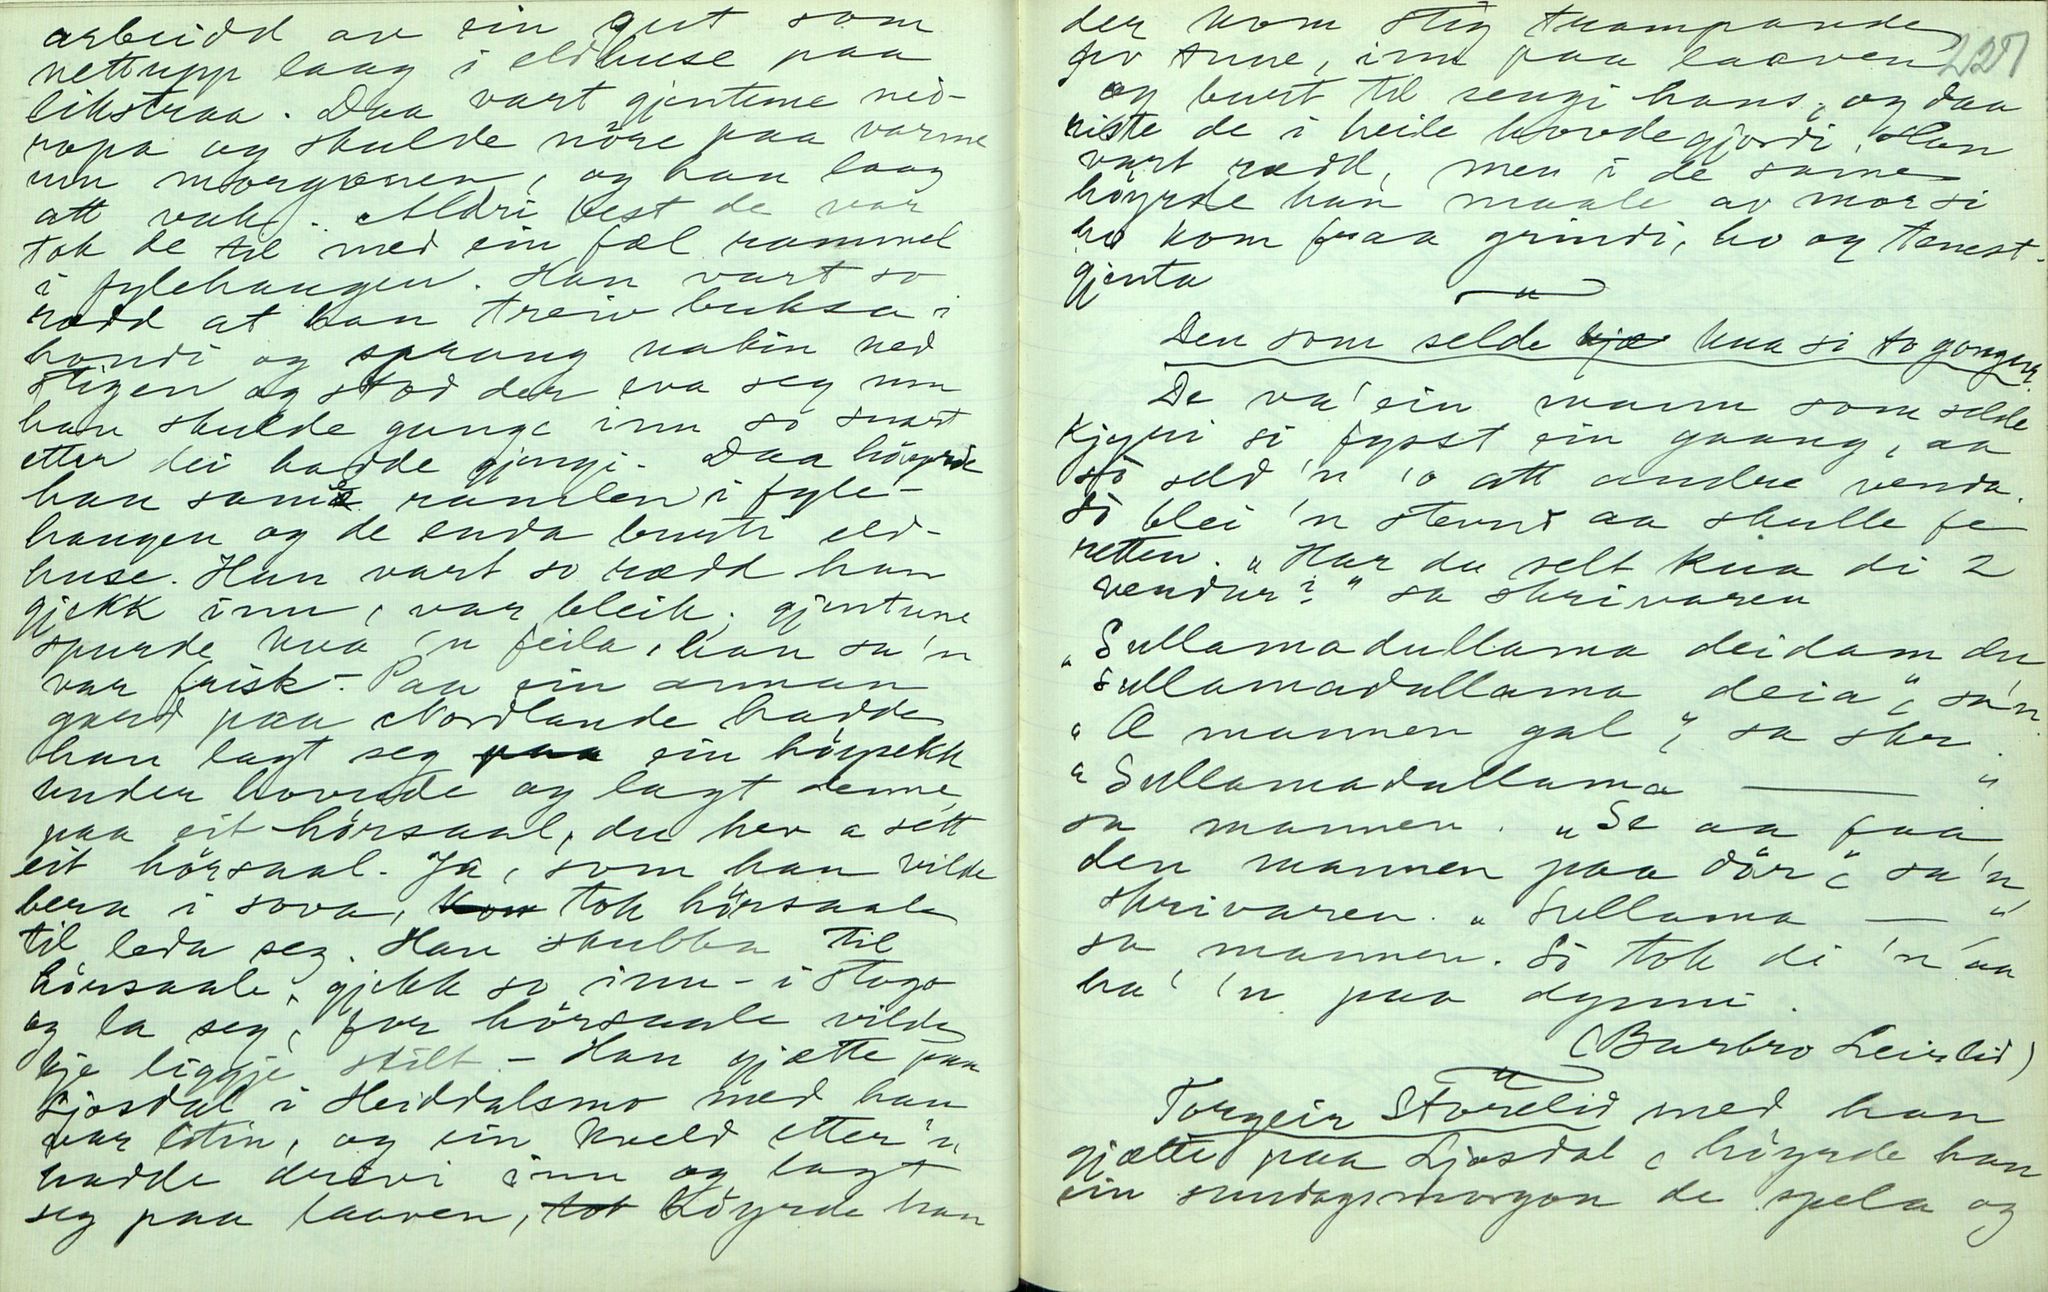 arbeidd av ein gut som
nettupp laag i eldhuse paa
likstraa. Daa vart gjentune ned-
ropa og skulde nöre paa varme
um morgonen, og han laag
att vak. Aldri best de var
tok de til med ein fæl rammel
i fylehaugen. Han vart so
rædd at han treiv buksa i
hondi og sprang nakin ned
stigen og stod der eva seg um
han skulde gange inn so snart
etter dei hadde gjengi. Daa höyrde
han same ramlen i fyle-
haugen og de enda burti eld-
huse. Han vart so rædd han
gjekk inn, var bleik, gjentune
spurde kva 'n feila, han sa 'n
var frisk - Paa ein annan
gard paa Nordlande hadde
han lagt seg paa ein höysekk
under hovude og lagt denne
paa eit hörsaal, du hev a sett
eit hörsaal. Ja, som han vilde
bera i sova, kom tok hörsaale
til leda seg. Han skubba til
hörsaale, gjekk so inn - i stogo
og la seg, for hörsaale vilde
kje liggje stilt - Han gjætte paa
Ljosdal i Heiddalsmo med han
var litin, og ein kveld etter 'n
hadde drivi inn og lagt
seg paa laaven, tok höyrde han
der kom stig trampande
yv tune, inn paa laaven 227
og burt til sengi hans, og daa
riste de i heile hovdegjordi. Han
vart rædd, men i de same
höyrde han maale av mor si
ho kom fraa grindi, ho og tenest-
gjenta
Den som selde kjø kua si to gonger.
De va' ein mann som selde
kjyri si fysst ein gaang, aa
so seld 'n 'o att andre venda.
So blei 'n stevnt aa skulle fe
retten. "Har du selt kua di 2
vendur?" sa skrivaren
"Sullamadullama deidam du
sullamadullama deia", sa'n.
"Æ mannen gal", sa skr.
"Sullamadullama — "
sa mannen. "Se aa faa
den mannen paa dör", sa 'n
skrivaren. "Sullama — "
sa mannen. So tok di 'n aa
ha' 'n paa dynni.
(Barbro Leirlid)
Torgeir Storelid med han
gjætte paa Ljosdal, höyrde han
ein sundagsmorgon de spela og